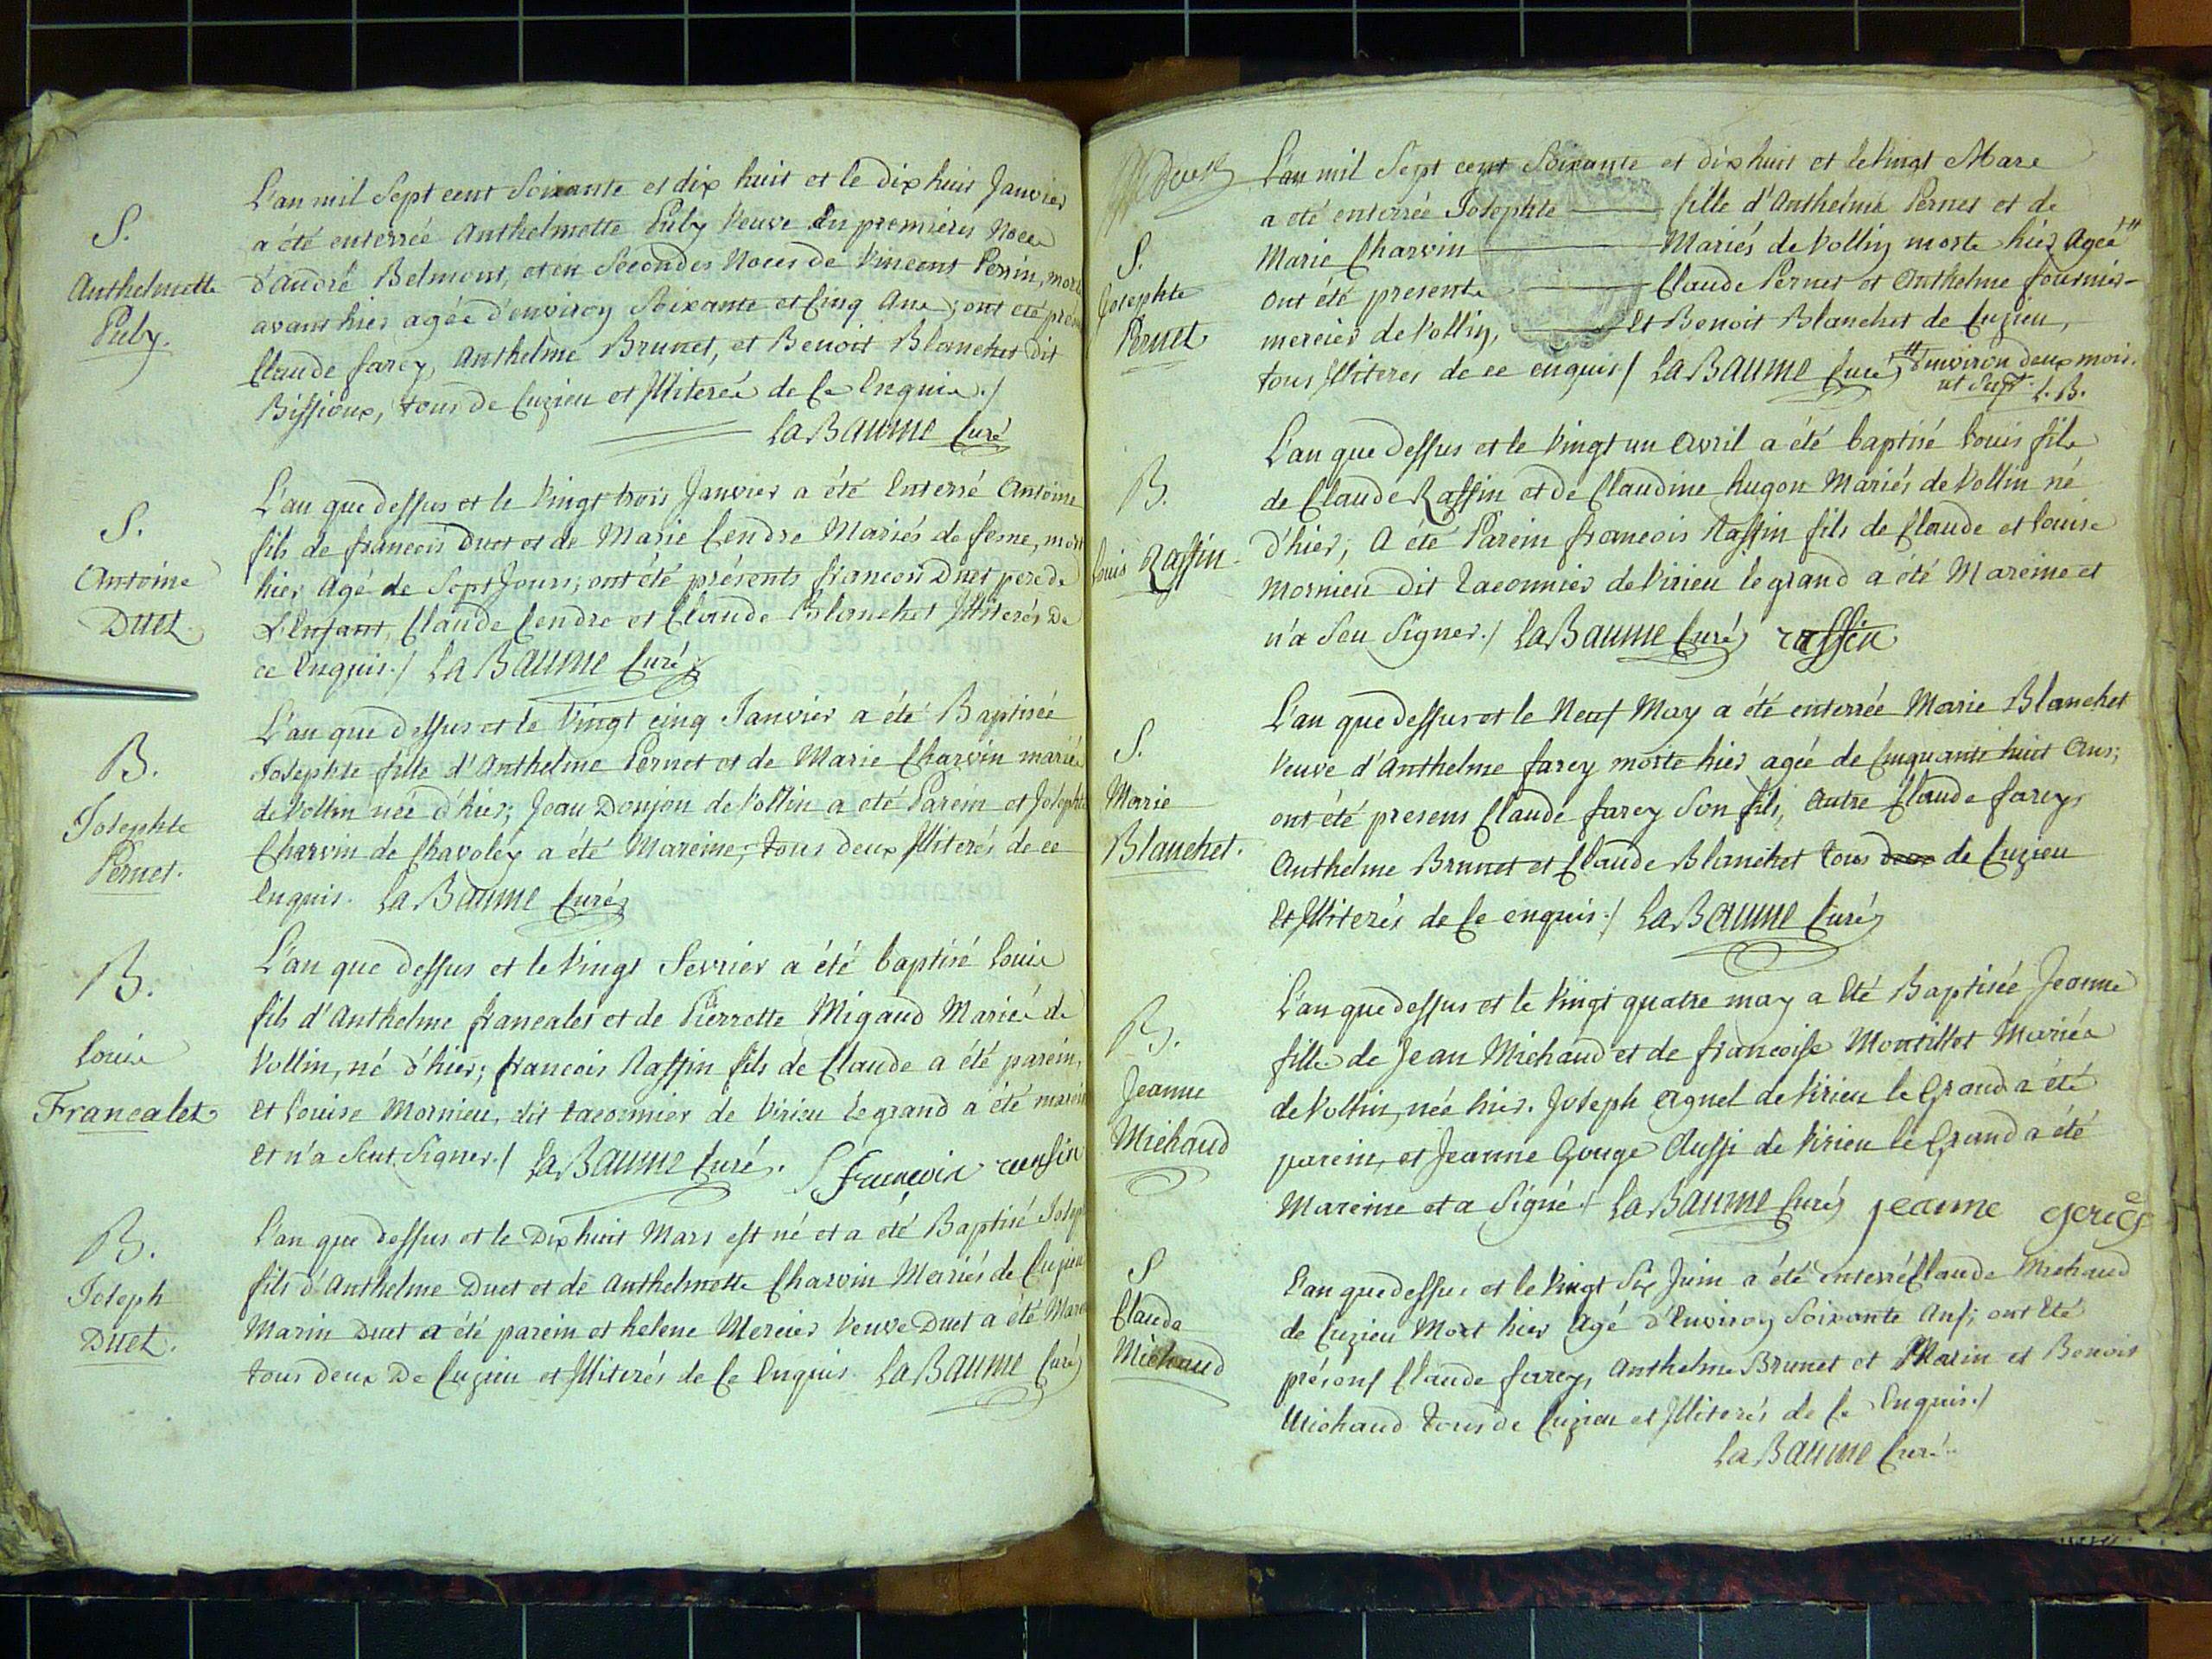 S.
Anthelmette
Puby.
L'an mil Sept cent Soixante et dix huit et le dix huit Janvier
a été enterrée Anthelmette Puby Veuve En premieres Noces
d'andré Belmont, et en Secondes Noces de Vincent Perrin, morte
avant hier agée d'environ Soixante et Cinq Ans; ont été
Claude farey, Anthelme Brunet, et Benoit Blanchet dit
Bissioux, tous de Cuzieu et Illiterés de Ce Enquis./
La Baume Curé
S.
Antoine
Duet
L'an que dessus et le Vingt trois Janvier a été Enterré Antoine
fils de francois Duet et de Marie Cendre Mariés de mort
hier Agé de Sept Jours; ont été présents francois Duet pere de
L'Enfant, Claude Cendre et Claude Blanchet Illiterés De
ce Enquis./ La Baume Curé
B.
Josephte
Pernet.
L'an que dessus et le Vingt cinq Janvier a été Baptisée
Josephte fille d'Anthelme Pernet et de Marie Charvin mariés
de Vollin née d'hier; Jean Donjon de Vollin a été Parein et Josephte
Charvin de Chavoley a été Mareine, tous deux Illiterés de ce
Enquis. La Baume Curé
B.
Louis
Francalet
L'an que dessus et le Vingt Fevrier a été baptisé Louis
fils d'Anthelme francalet et de Pierrette Migaud Mariés de
Vollin, né d'hier; francois Raffin fils de Claude a été parein,
et Louise Mornieu, dit taconnier de Virieu le grand a été mareine
et n'a Seut Signer./ La Baume Curé. francois raffin
B.
Joseph
Duet.
L'an que dessus et le Dix huit Mars est né et a été Baptisé Joseph
fils d'Anthelme Duet et de Anthelmette Charvin Mariés de Cuzieu
Marin Duet a été parein et helene Mercier Veuve Duet a été Mareine
tous deux De Cuzieu et Illiterés de Ce Enquis. La Baume Curé
L'an mil Sept cent Soixante et dix huit et le Vingt Mars
S.
Josephte
Pernet
a été enterrée Josephte fille d'Anthelme Pernet et de
Marie Charvin Mariés de Vollin morte hier Agée #
ont été presents Claude Pernet et Anthelme fournier-
mercier de Vollin, Et Benoit Blanchet de Cuzieu,
tous Illiteres de ce enquis./ La Baume Curé # d'environ deux mois.
ut Sup. L. B.
B.
Louis Raffin
L'an que dessus et le Vingt un Avril a été baptisé Louis fils
de Claude Raffin et de Claudine hugon Mariés de Vollin né
d'hier; A été Parein francois Raffin fils de Claude et Louise
Mornieu dit taconnier de Virieu le grand a été Mareine et
n'a Seu Signer./ La Baume Curé raffin
S.
Marie
Blanchet.
L'an que dessus et le Neuf May a été enterrée Marie Blanchet
Veuve d'Anthelme farey morte hier agée de Cinquante huit Ans;
ont été presens Claude farey Son fils, Autre Claude farey
Anthelme Brunet et Claude Blanchet tous de Cuzieu
Et Illiterés de Ce enquis./ La Baume Curé
B.
Jeanne
Michaud
L'an que dessus et le Vingt quatre may a Eté Baptisée Jeanne
fille de Jean Michaud et de francoise Montillet Mariés
de Vollin, née hier. Joseph Agnel de Virieu le Grand a été
parein, et Jeanne Gouge Aussi de Virieu le Grand a été
Mareine et a Signé./ La Baume Curé jeanne
S
Claude
Michaud
L'an que dessus et le Vingt Six Juin a été enterré Claude Michaud
de Cuzieu Mort hier Agé d'Environ Soixante Ans; ont Eté
présens Claude farey, Anthelme Brunet et Marin et Benoit
Michaud tous de Cuzieu et Illiterés de Ce Enquis./
La Baume Curé